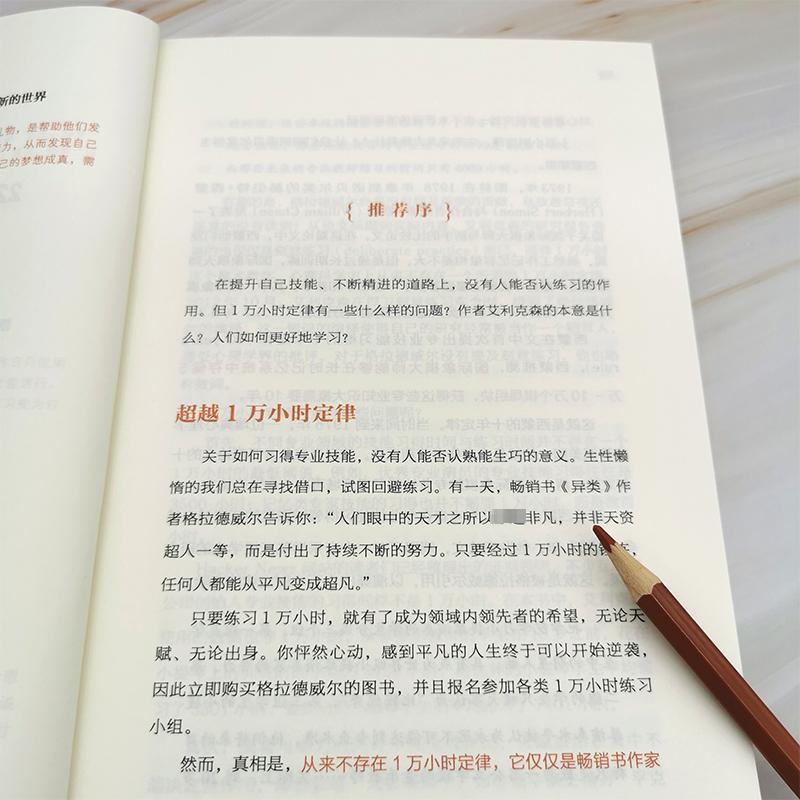 新的世界
物，是帮助他们发
力，从而发现自己
己的梦想成真，需
{ 推荐序 }
在提升自己技能、不断精进的道路上，没有人能否认练习的作
用。但 1 万小时定律有一些什么样的问题？作者艾利克森的本意是什
么？人们如何更好地学习？
超越 1 万小时定律
关于如何习得专业技能，没有人能否认熟能生巧的意义。生性懒
惰的我们总在寻找借口，试图回避练习。有一天，畅销书《异类》作
者格拉德威尔告诉你：“人们眼中的天才之所以非凡，并非天资
超人一等，而是付出了持续不断的努力。只要经过 1 万小时的
任何人都能从平凡变成超凡。”
只要练习 1 万小时，就有了成为领域内领先者的希望，无论天
赋、无论出身。你怦然心动，感到平凡的人生终于可以开始逆袭，
因此立即购买格拉德威尔的图书，并且报名参加各类 1 万小时练习
小组。
然而，真相是，从来不存在 1 万小时定律，它仅仅是畅销书作家